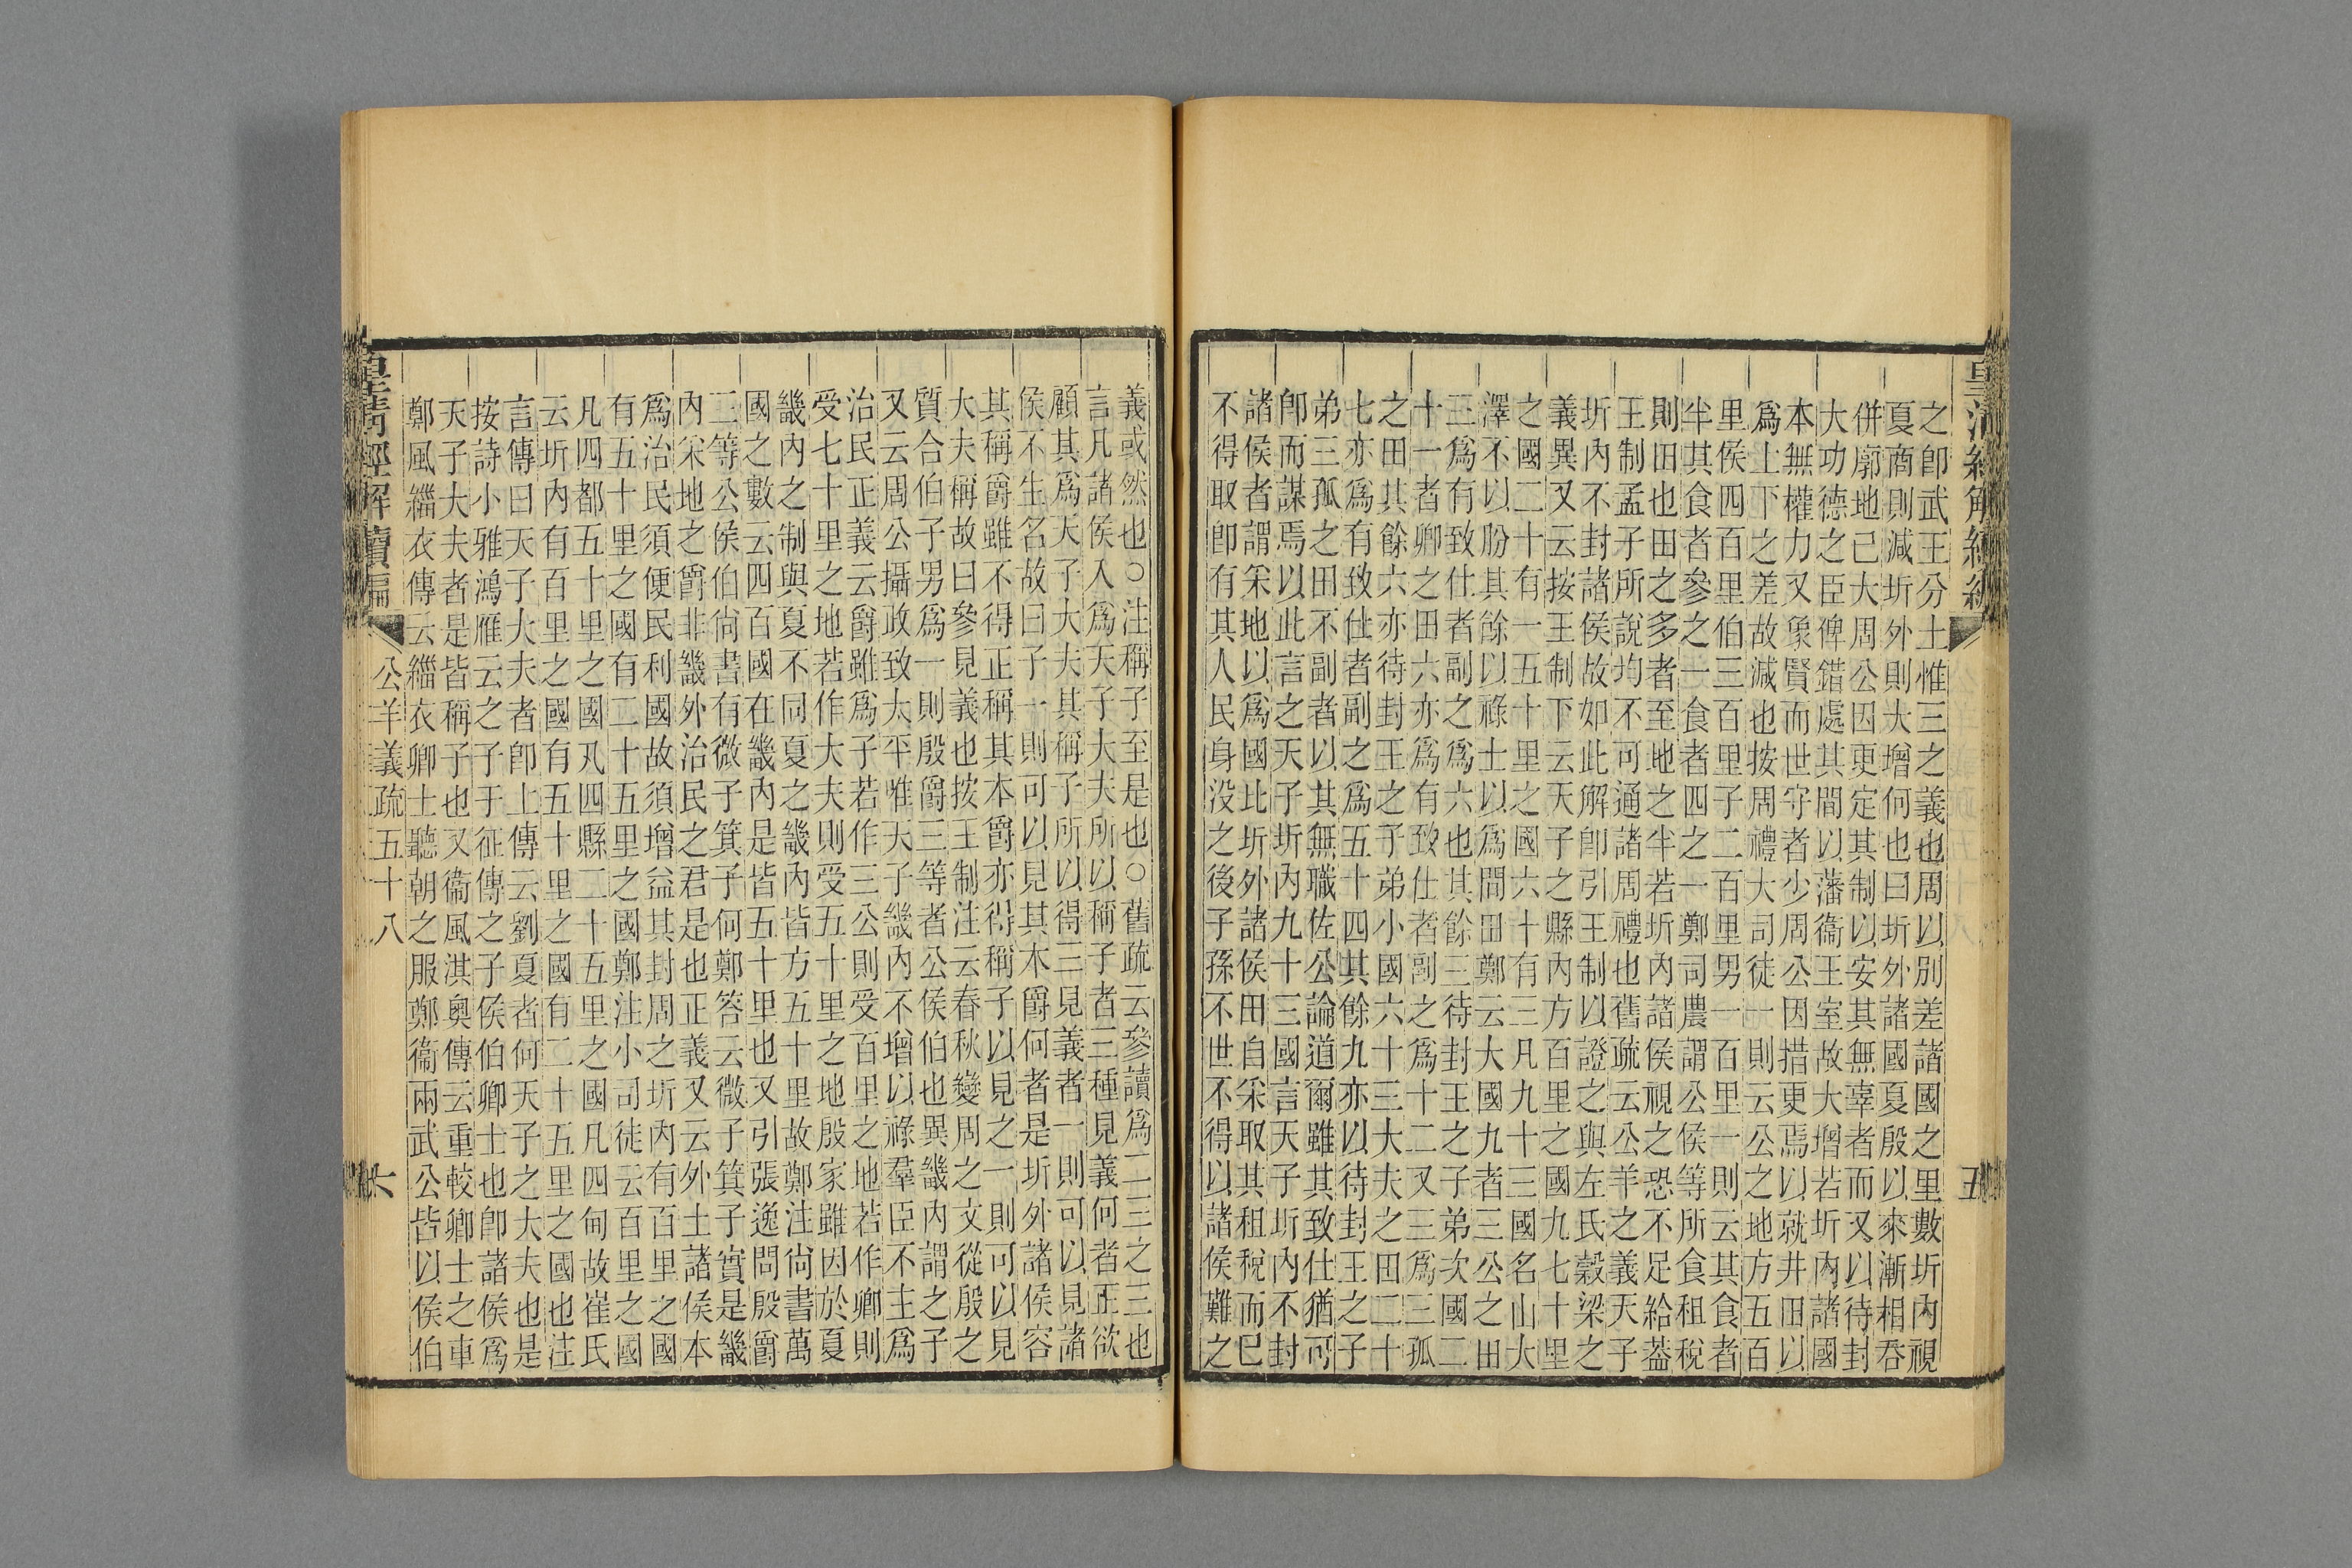 之卽武王分土惟三之義也周以別差諸國之里數圻內視
夏商則減圻外則大增何也曰圻外諸國夏殷以來漸相吞
併廓地己大周公因更定其制以安其無辜者而又以待封
大功德之臣俾錯處其間以藩衞王室故大增若圻內諸國
本無權力又象賢而世守者少周公因措更焉以就井田以
爲上下之差故減也按周禮大司徒一則云公之地方五百
里侯四百里伯三百里子二百里男一百里一則云其食者
半其食者參之一食者四之一鄭司農謂公侯等所食租稅
則田也田之多者至地之半若圻內諸侯視之恐不足給葢
王制孟子所說均不可通諸周禮也舊疏云公羊之義天子
圻內不封諸侯故如此解卽引王制以證之與左氏穀梁之
義異又云按王制下云天子之縣內方百里之國九七十里
之國二十有一五十里之國六十有三凡九十三國名山大
澤不以朌其餘以祿士以爲間田鄭云大國九者三公之田
三爲有致仕者副之爲六也其餘三待封王之子弟次國二
十一者卿之田六亦爲有致仕者副之爲十二又三爲三孤
之田其餘六亦待封王之子弟小國六十三大夫之田二十
七亦爲有致仕者副之爲五十四其餘九亦以待封王之子
弟三孤之田不副者以其無職佐公論道爾雖其致仕猶可
卽而謀焉以此言之天子圻內九十三國言天子圻內不封
諸侯者謂采地以爲國比圻外諸侯田自采取其租稅而巳
不得取卽有其人民身没之後子孫不世不得以諸侯難之
五
義或然也○注稱子至是也○舊疏云參讀爲二三之三也
言凡諸侯入爲天子大夫所以稱子者三種見義何者正欲
顧其爲天子大夫其稱子所以得三見義者一則可以見諸
侯不生名故曰子一則可以見其本爵何者是圻外諸侯容
其稱爵雖不得正稱其本爵亦得稱子以見之一則可以見
大夫稱故曰參見義也按王制注云春秋變周之文從殷之
質合伯子男爲一則殷爵三等者公侯伯也異畿內謂之子
又云周公攝政致太平唯天子畿內不增以祿羣臣不主爲
治民正義云爵雖爲子若作三公則受百里之地若作卿則
受七十里之地若作大夫則受五十里之地殷家雖因於夏
畿內之制與夏不同夏之畿內皆方五十里故鄭注尙書萬
國之數云四百國在畿內是皆五十里也又引張逸問殷爵
三等公侯伯尙書有微子箕子何鄭答云微子箕子實是畿
內采地之爵非畿外治民之君是也正義又云外土諸侯本
爲治民須便民利國故須增益其封周之圻內有百里之國
有五十里之國有二十五里之國鄭注小司徒云百里之國
凡四都五十里之國凡四縣二十五里之國凡四甸故崔氏
云圻內有百里之國有五十里之國有二十五里之國也注
言傳曰天子大夫者卽上傳云劉夏者何天子之大夫也是
按詩小雅鴻雁云之子于征傳之子侯伯卿士也卽諸侯爲
天子大夫者是皆稱子也又衞風淇奧傳云重較卿士之車
鄭風緇衣傳云緇衣卿士聽朝之服鄭衞兩武公皆以侯伯
皇淸經解續編
公羊義疏五十八
六